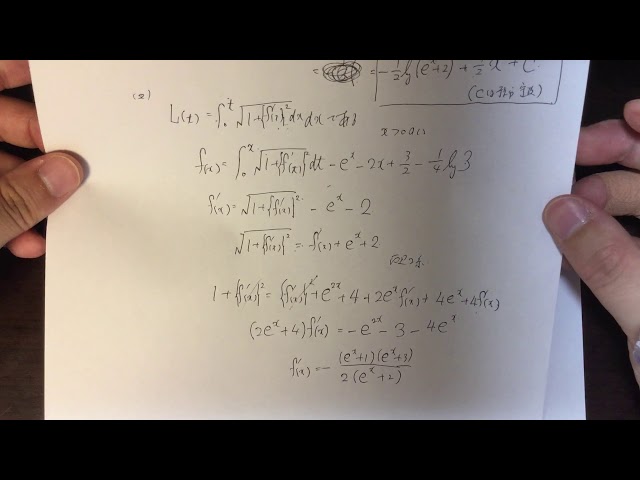 = = -1/2 lg(e^x+2) + 1/2 x + C.
(Cは積分定数)
(2)
L(t) = ∫_0^t √(1+{f'(x)}^2) dx
x>0のとき
f(x) = ∫_0^x √(1+{f'(x)}^2) dt - e^x - 2x + 3/2 - 1/4 lg 3
f'(x) = √(1+{f'(x)}^2) - e^x - 2
√(1+{f'(x)}^2) = f'(x) + e^x + 2
1+{f'(x)}^2 = {f'(x)}^2 + e^{2x} + 4 + 2e^x f'(x) + 4e^x + 4f'(x)
(2e^x+4)f'(x) = -e^{2x} - 3 - 4e^x
f'(x) = - (e^x+1)(e^x+3) / 2(e^x+2)